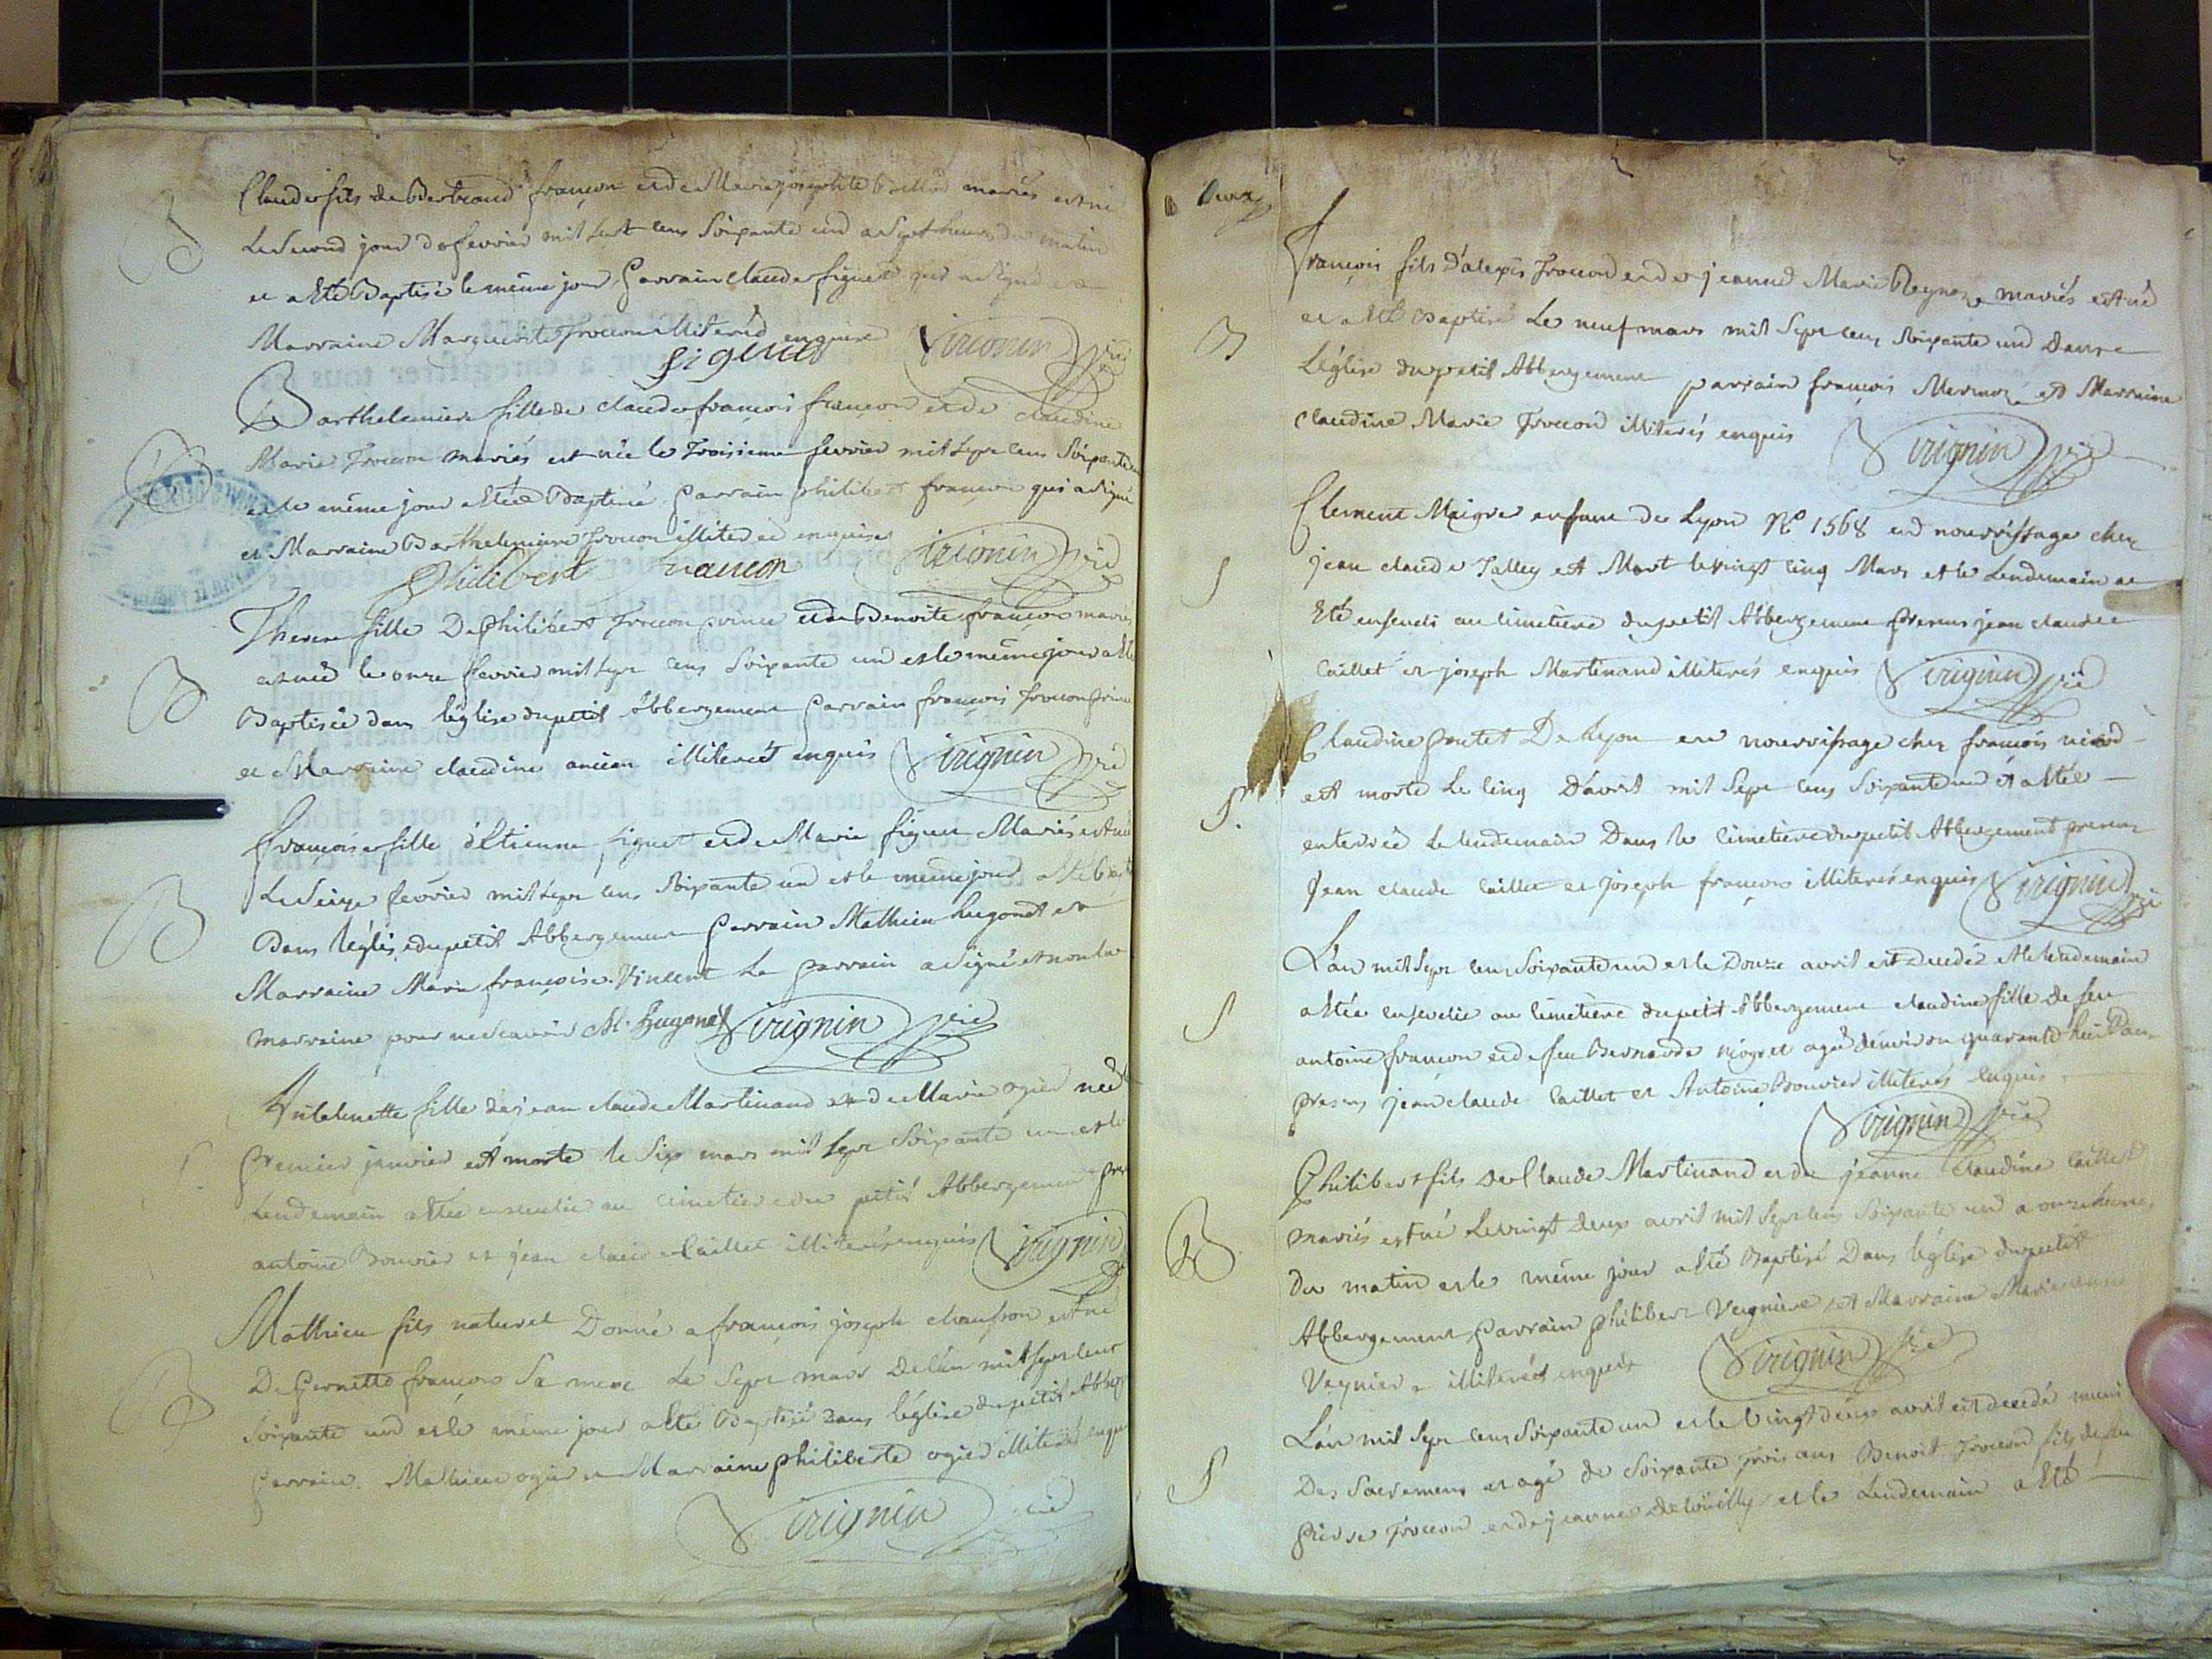 Claude fils de Bertrand françon et de Marie josephte mariés est né
Le Second jour de fevrier mil sept cens Soixante un a Sept heures du matin
et a Eté Baptisé le même jour Parrain Claude figuet qui a Signé et
Marraine Marguerite Trocon illiterée enquise
figuet Virignin pré
B
Barthelemiere fille de claude françois françon et de claudine
Marie Trocon mariés est née le Troisieme fevrier mil sept cens Soixante un
et le même jour a Etée Baptisée Parrain philibert françon qui a Signé
et Marraine Barthelemiere Trocon illiterée enquise Virignin pré
Philibert françon
B
Therese fille De philibert Trocon prince et de Benoite françon mariés
est née le onze fevrier mil sept cens Soixante un et le même jour a Eté
Baptisée dans l'église du petit Abbergement Parrain françois Trocon prince
et Marraine claudine ancian illiterés enquis Virignin pré
B
françoise fille d'Etienne figuet et de Marie figuet Mariés est née
Le Seize fevrier mil sept cens Soixante un et le même jour a Eté
Dans l'église du petit Abbergement Parrain Mathieu hugonet et
Marraine Marie françoise Vincent Le parrain a Signé et non la
marraine pour ne scavoir M. Hugonet Virignin pré
B
Anthelmette fille de jean claude Martinand et de Marie ogier née
Premier janvier est morte le Six mars mil sept Soixante un et le
Lendemain a Etée ensevelie au cimetiere du petit Abbergement
antoine Bouvier et jean claude Caillet illiterés enquis Virignin
S
Mathieu fils naturel Donné a françois joseph chanfron est né
De Pernette françon Sa mere Le Sept mars De l'an mil sept cens
Soixante un et le même jour a Eté Baptisé dans l'église du petit
Parrain Mathieu ogier et Marraine philiberte ogier illiterés
Virignin pré
B
Deux
françois fils d'alexis Trocon et de jeanne Marie mariés est né
et a Eté Baptisé Le neuf mars mil Sept cens Soixante un Dans
L'église du petit Abbergement parrain françois Mermoz et Marraine
Claudine Marie Trocon illiterés enquis Virignin pré
B
Clement Maigre enfant de Lyon N° 1568 en nourrissage chez
jean claude Talley est Mort le vingt cinq Mars et le Lendemain a
Eté enseveli au cimetiere du petit Abbergement presens jean claude
Caillet et joseph Martinand illiterés enquis Virignin pré
S
Claudine pontet De Lyon en nourrissage chez françois
est morte Le cinq D'avril mil Sept cens Soixante un et a Etée
enterrée Le lendemain Dans le cimetiere du petit Abbergement presens
Jean claude Caillet et Joseph françon illiterés enquis Virignin pré
S
L'an mil Sept cens Soixante un et le Douze avril est decedée et le lendemain
a Etée ensevelie au cimetiere du petit Abbergement claudine fille de feu
antoine françon et de feu Bernarde agée d'environ quarante huit ans
presens jean claude Caillet et Antoine Bouvier illiterés enquis
Virignin pré
S
Philibert fils de Claude Martinand et de jeanne claudine Caillet
mariés est né Le vingt deux avril mil Sept cens Soixante un a onze heures
du matin et le même jour a Eté Baptisé Dans l'église du petit
Abbergement Parrain philibert et Marraine Marie
illiterés enquis Virignin pré
B
L'an mil Sept cens Soixante un et le vingt deux avril est decedé muni
Des Sacremens et agé de Soixante trois ans Benoit Trocon fils de feu
Pierre Trocon et de jeanne et le Lendemain a Eté
S